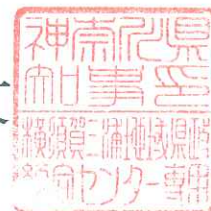 神奈川県
知事印
横須賀三浦地域県政
総合センター専用